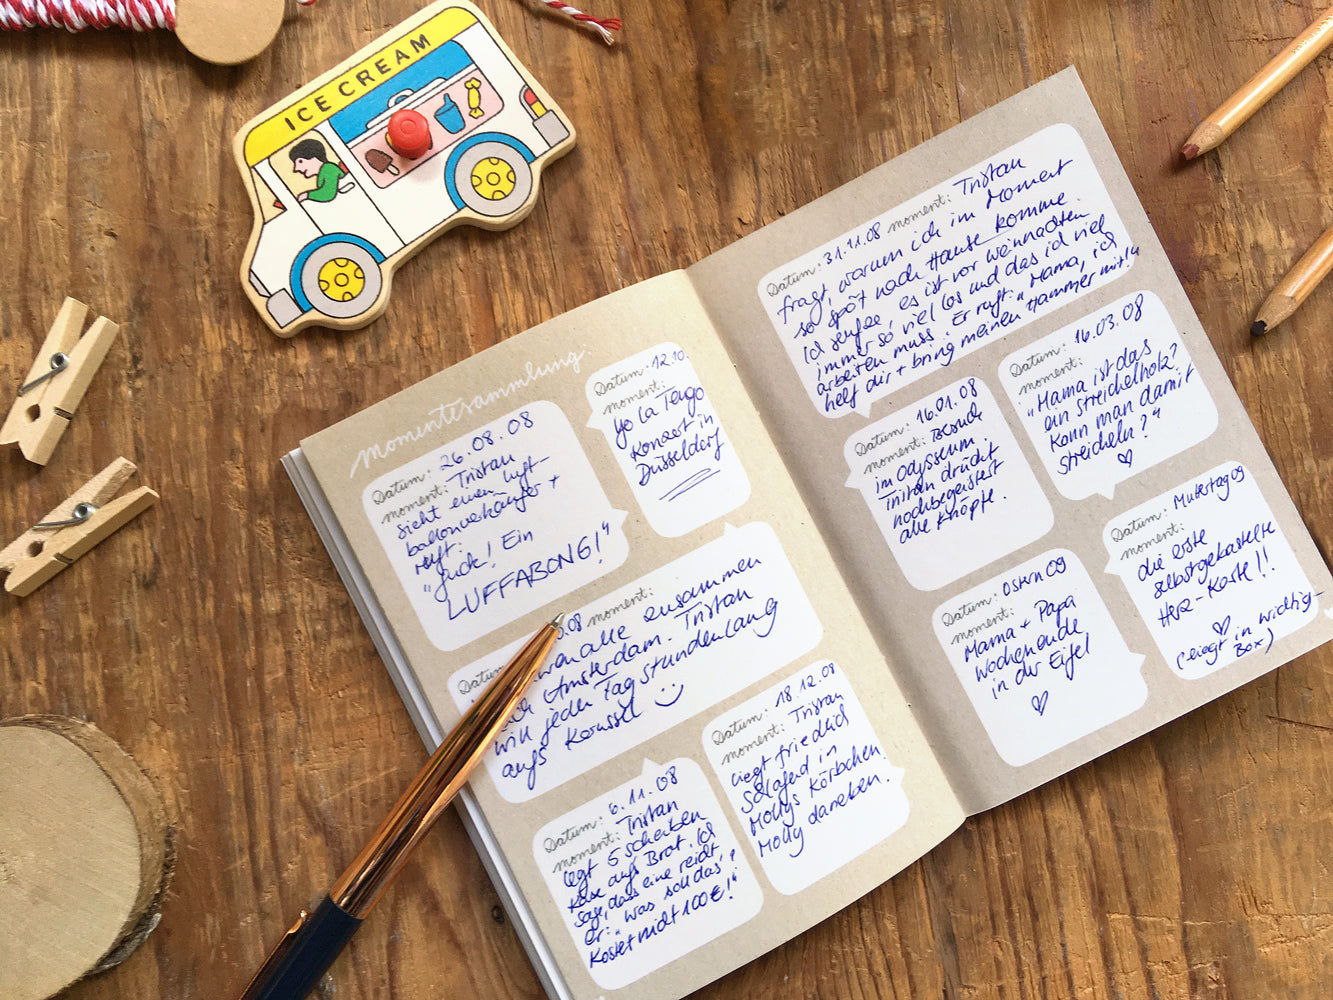 ICE CREAM
momentesammlung.
Datum: 26.08.08
moment: Tristan
sieht einen Luft-
ballonverkäufer +
ruft:
"Guck! Ein
LUFFABONG!"
Datum: 12.10.
moment:
Yo La Tengo
Konzert in
Düsseldorf
Datum: .08 moment:
alle zusammen
Amsterdam. Tristan
will jeden Tag stundenlang
aufs Karussell
Datum: 6.11.08
moment: Tristan
legt 5 Scheiben
Käse aufs Brot. Ich
sage, dass eine reicht
er: "was soll das?
Kostet nicht 100€!"
Datum: 18.12.08
moment: Tristan
liegt friedlich
schlafend in
Mollys Körbchen.
Molly daneben.
Datum: 31.11.08 moment: Tristan
fragt, warum ich im Moment
so spät nach Hause komme.
Ich seufze es ist vor weihnachten
immer so viel los und das ich viel
arbeiten muss. Er ruft: "Mama, ich
helf dir + bring meinen Hammer mit!"
Datum: 16.01.08
moment: Besuch
im Odysseum.
Tristan drückt
hochbegeistert
alle Knöpfe.
Datum: 16.03.08
moment:
"Mama ist das
ein Streichelholz?
Kann man damit
streicheln?"
Datum: Ostern 09
moment:
Mama + Papa
Wochenende
in der Eifel
Datum: Muttertag 09
moment:
die erste
selbstgebastelte
Herz-Karte!!
(liegt in wichtig-
Box)